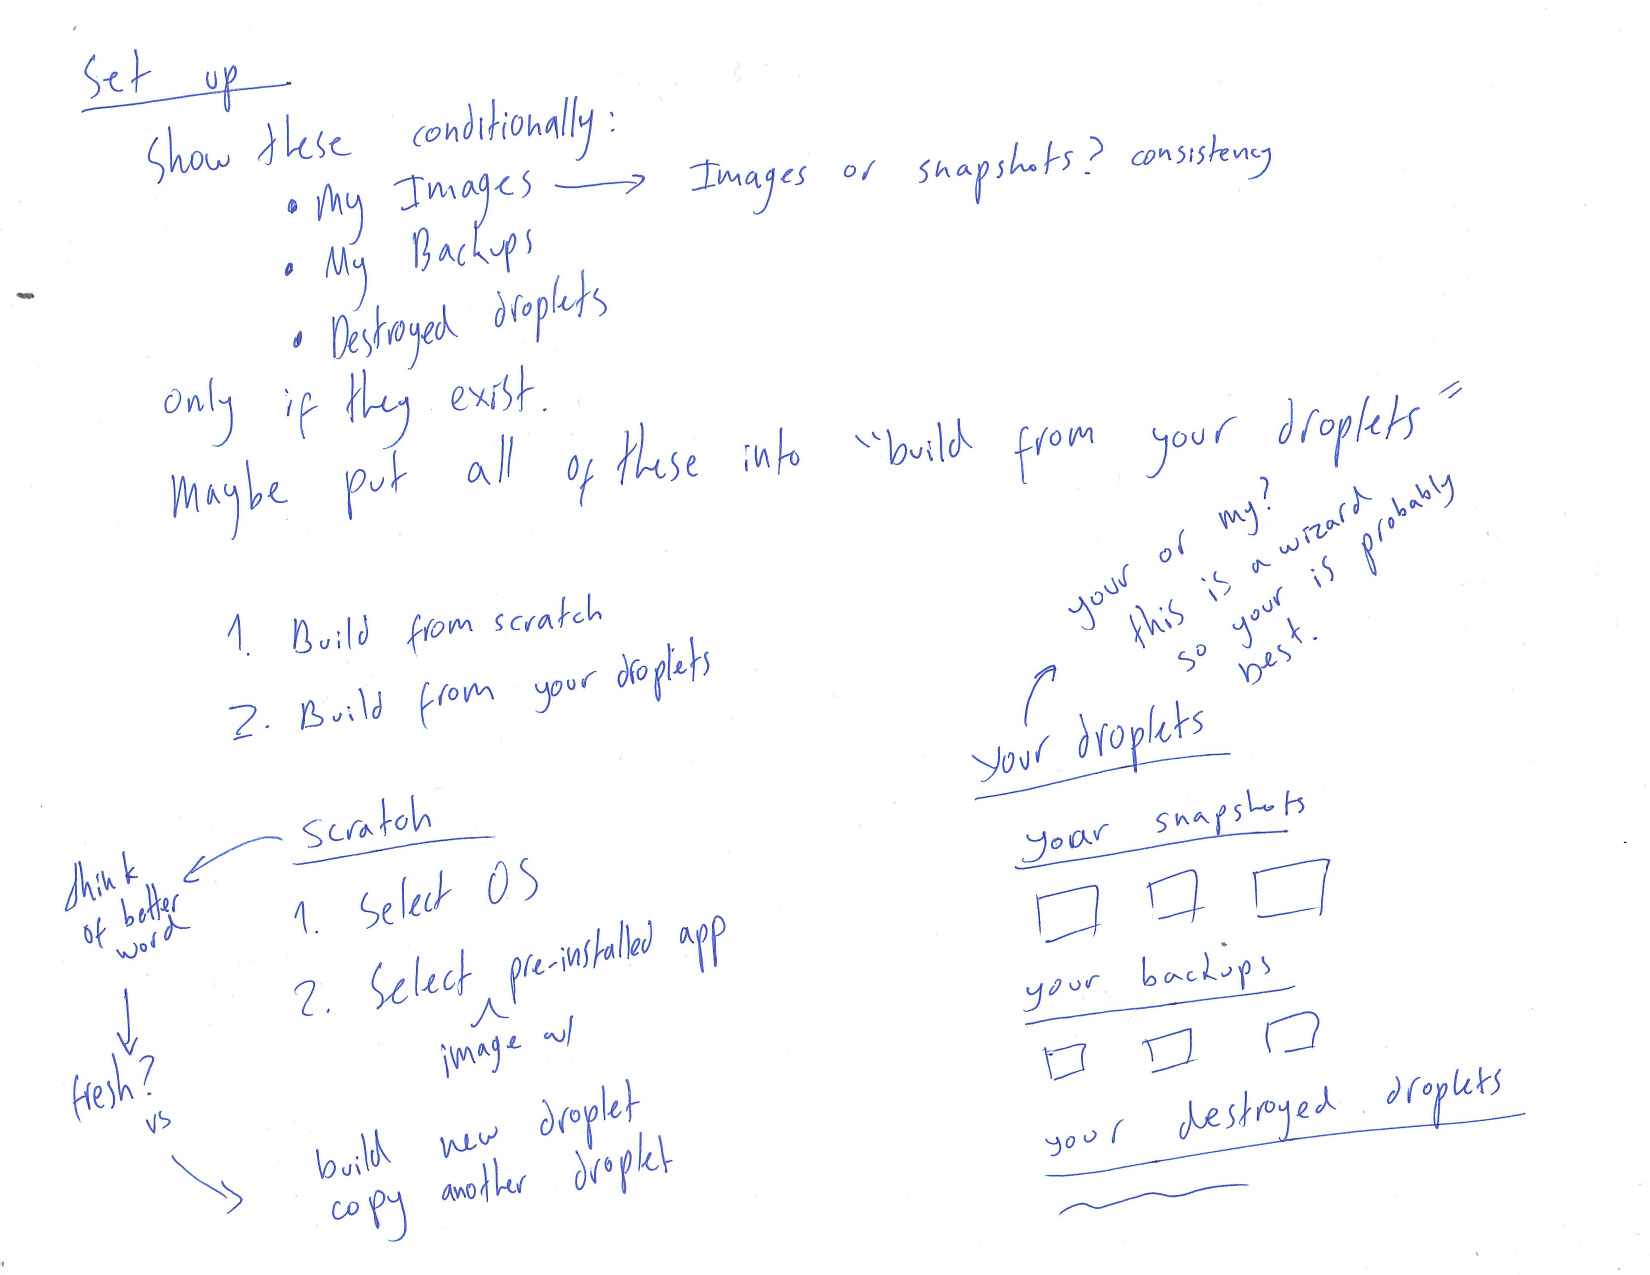 Set up
Show these conditionally:
• My Images → Images or snapshots? consistency
• My Backups
• Destroyed droplets
only if they exist.
Maybe put all of these into "build from your droplets"
your or my?
this is a wizard
so your is probably
best.
1. Build from scratch
2. Build from your droplets
Scratch
think
of better
word
fresh?
vs
1. Select OS
2. Select pre-installed app
image w/
build new droplet
copy another droplet
your droplets
your snapshots
your backups
your destroyed droplets